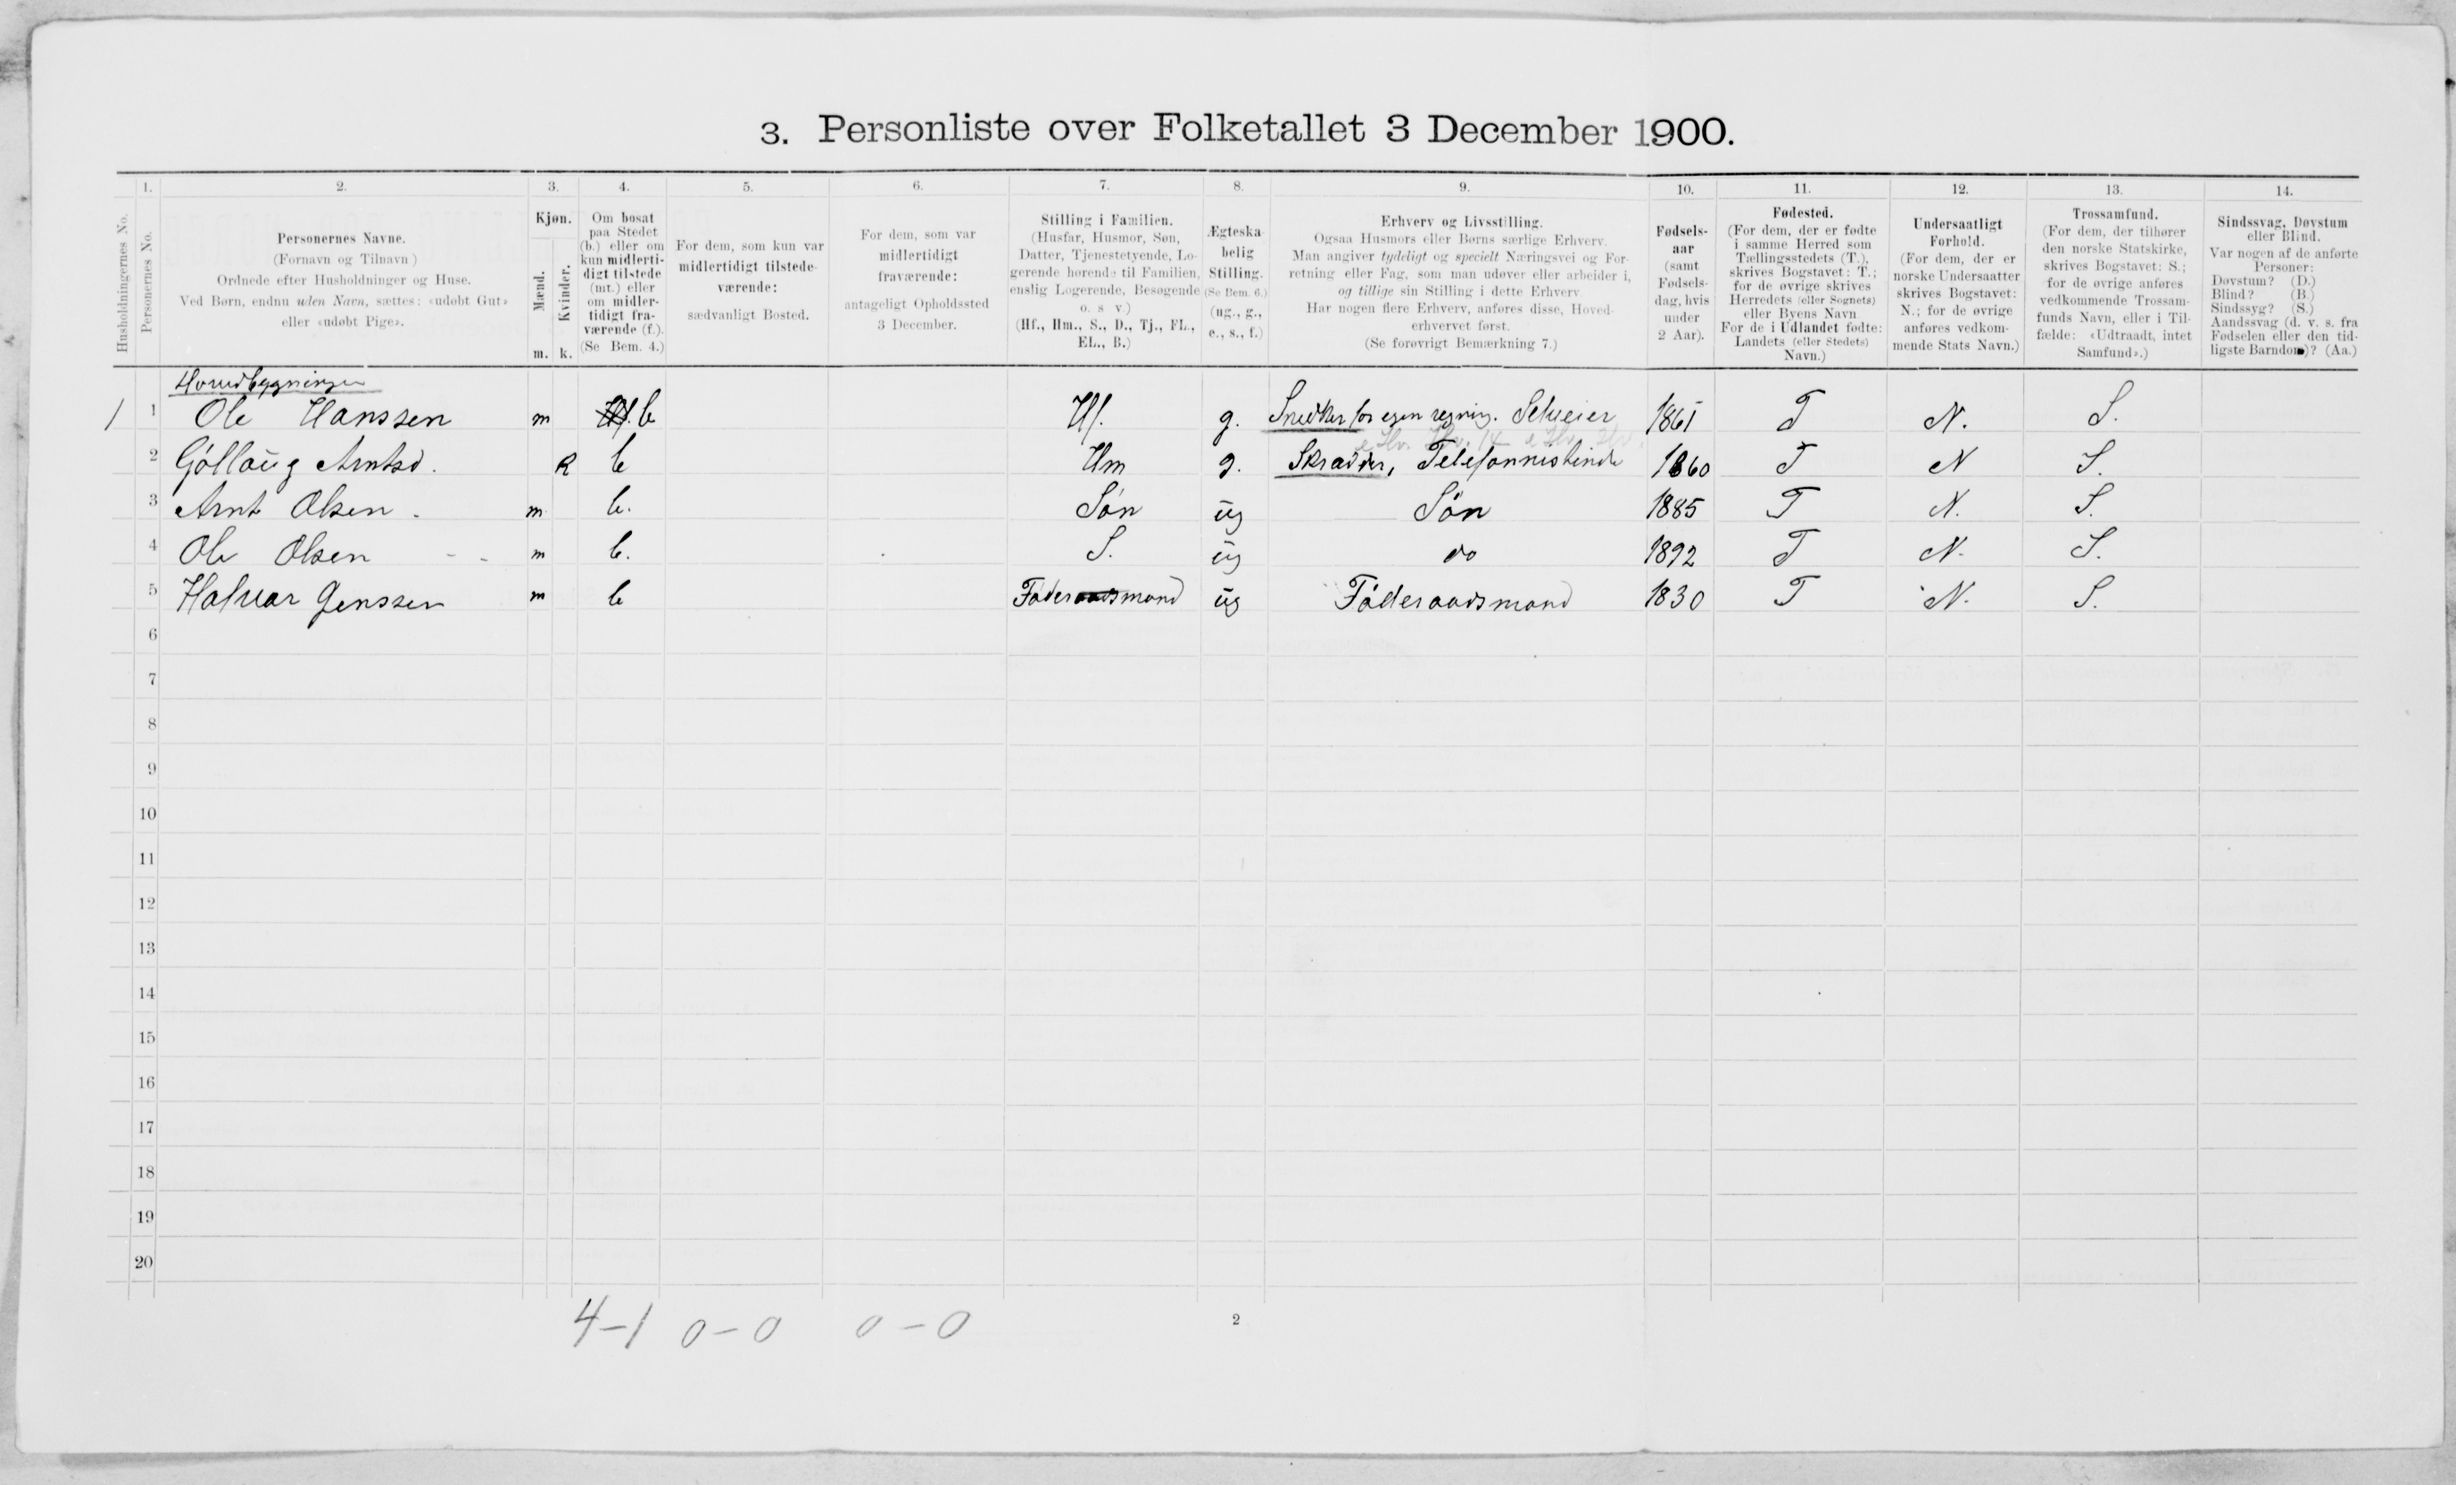 3. Personliste over Folketallet 3 December 1900.
1. 2. 3. 4. 5. 6. 7. 8. 9. 10. 11. 12. 13. 14.
Husholdningernes No.
Personernes No.
Personernes Navne.
(Fornavn og Tilnavn)
Ordnede efter Husholdninger og Huse.
Ved Børn, endnu uden Navn, sættes: «udøbt Gut»
eller «udøbt Pige».
Kjøn.
Mænd.
Kvinder.
m. k.
Om bosat
paa Stedet
(b.) eller om
kun midlerti-
digt tilstede
(mt.) eller
om midler-
tidigt fra-
værende (f.).
(Se Bem. 4.)
For dem, som kun var
midlertidigt tilstede-
værende:
sædvanligt Bosted.
For dem, som var
midlertidigt
fraværende:
antageligt Opholdssted
3 December.
Stilling i Familien.
(Husfar, Husmor, Søn,
Datter, Tjenestetyende, Lo-
gerende hørende til Familien,
enslig Logerende, Besøgende
o. s v.)
(Hf., Hm., S., D., Tj., FL.,
EL., B.)
Ægteska-
belig
Stilling.
(Se Bem. 6.)
(ug., g.,
e., s., f.)
Erhverv og Livsstilling.
Ogsaa Husmors eller Børns særlige Erhverv.
Man angiver tydeligt og specielt Næringsvei og For-
retning eller Fag, som man udøver eller arbeider i,
og tillige sin Stilling i dette Erhverv
Har nogen flere Erhverv, anføres disse, Hoved-
erhvervet først.
(Se forøvrigt Bemærkning 7.)
Fødsels-
aar
(samt
Fødsels-
dag, hvis
under
2 Aar).
Fødested.
(For dem, der er fødte
i samme Herred som
Tællingsstedets (T.),
skrives Bogstavet: T.;
for de øvrige skrives
Herredets (eller Sognets)
eller Byens Navn
For de i Udlandet fødte:
Landets (eller Stedets)
Navn.)
Undersaatligt
Forhold.
(For dem, der er
norske Undersaatter
skrives Bogstavet:
N.; for de øvrige
anføres vedkom-
mende Stats Navn.)
Trossamfund.
(For dem, der tilhører
den norske Statskirke,
skrives Bogstavet: S.;
for de øvrige anføres
vedkommende Trossam-
funds Navn, eller i Til-
fælde: «Udtraadt, intet
Samfund».)
Sindssvag, Døvstum
eller Blind.
Var nogen af de anførte
Personer:
Døvstum? (D.)
Blind? (B.)
Sindssyg? (S.)
Aandssvag (d. v. s. fra
Fødselen eller den tid-
ligste Barndom)? (Aa.)
Hovedbygningen
1 1 Ole Hanssen m b Hf. g. Snedker for egen regning. Selveier 1861 T N. S.
2 Gøllaug Arntsd. k b Hm g. Skrædder, Telefonnistinde 1860 T N S.
3 Arnt Olsen. m b. Søn ug Søn 1885 T N. S.
4 Ole Olsen - - m b. S. ug do 1892 T N. S.
5 Halvar Jenssen m b Føderaadsmand ug Føderaadsmand 1830 T N. S.
6
7
8
9
10
11
12
13
14
15
16
17
18
19
20
4-1 0-0 0-0
2